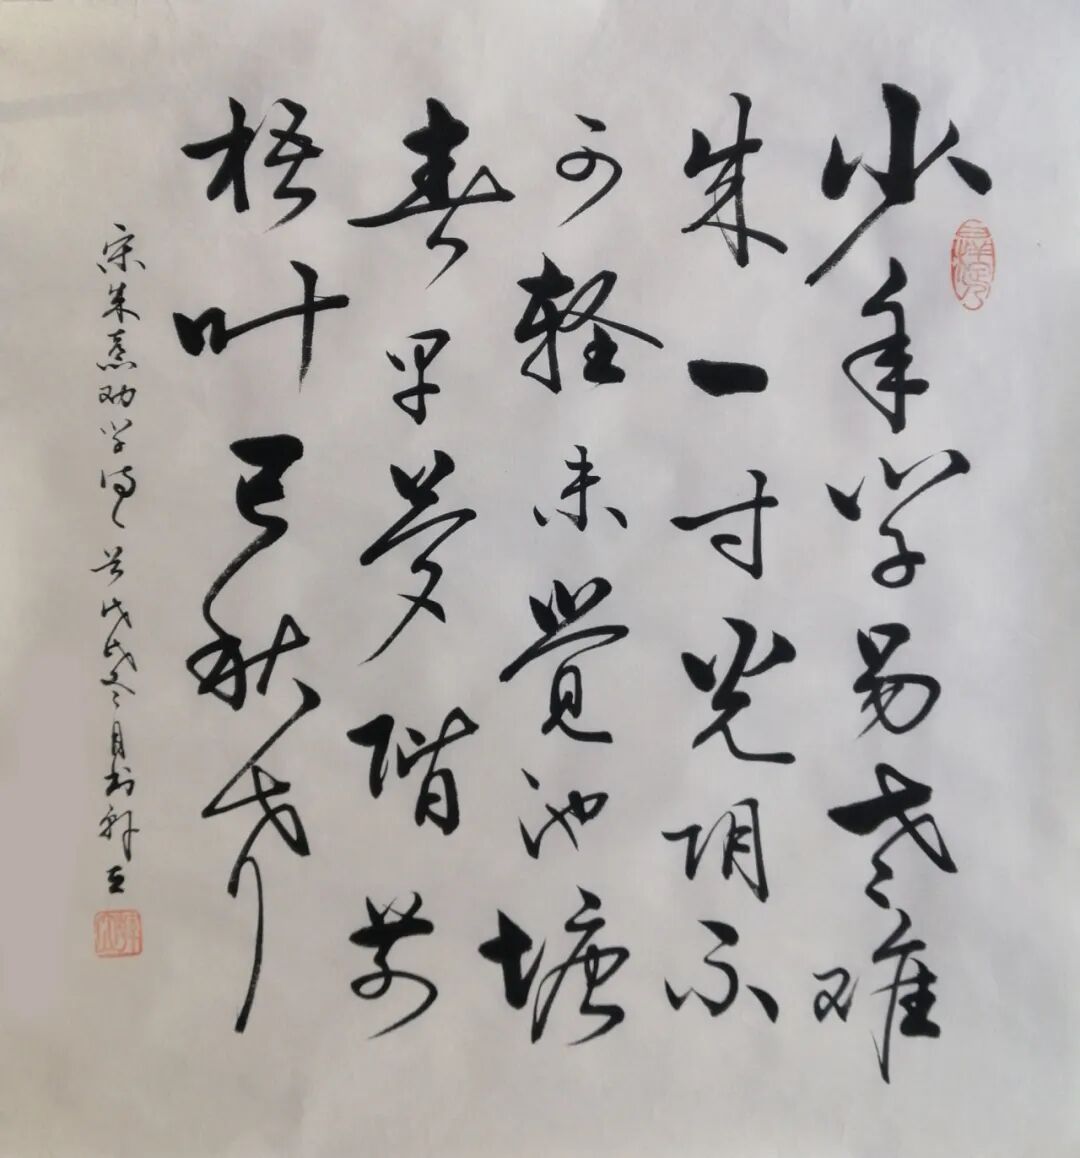 少年学易老难
成一寸光阴不
可轻未觉池塘
春草梦阶前
梧叶已秋声
宋朱熹劝学诗 戊戌冬月书